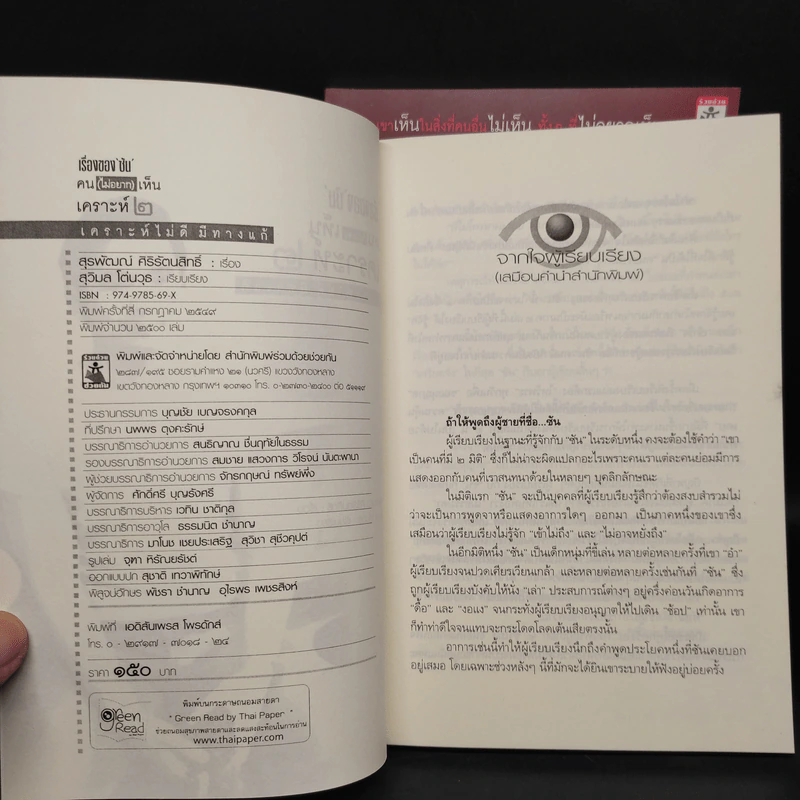 เรื่องของ'ซัน'
คน(ไม่อยาก)เห็น
เคราะห์ ๒
เคราะห์ไม่ดี มีทางแก้
สุรพัฒณ์ ศิริรัตนสิทธิ์ : เรื่อง
สุวิมล โต่นวุธ : เรียบเรียง
ISBN : 974-9785-69-X
พิมพ์ครั้งที่สี่ กรกฎาคม ๒๕๔๙
พิมพ์จำนวน ๒๕๐๐ เล่ม
พิมพ์และจัดจำหน่ายโดย สำนักพิมพ์ร่วมด้วยช่วยกัน
๒๘๗/๑๙๕ ซอยรามคำแหง ๒๑ (นวศรี) แขวงวังทองหลาง
เขตวังทองหลาง กรุงเทพฯ ๑๐๓๑๐ โทร. ๐-๒๗๓๐-๒๔๐๐ ต่อ ๕๑๑๑๙
ประธานกรรมการ บุญชัย เบญจรงคกุล
ที่ปรึกษา นพพร ตุงคะรักษ์
บรรณาธิการอำนวยการ สนธิญาณ ชื่นฤทัยในธรรม
รองบรรณาธิการอำนวยการ สมชาย แสวงการ วิโรจน์ นันตะพานา
ผู้ช่วยบรรณาธิการอำนวยการ จักรกฤษณ์ ทรัพย์พึ่ง
ผู้จัดการ ศักดิ์ศรี บุญรังศรี
บรรณาธิการบริหาร เวทิน ชาติกุล
บรรณาธิการอาวุโส ธรรมนิต ชำนาญ
บรรณาธิการ มาโนช เชยประเสริฐ สุวิชา สุชีวคุปต์
รูปเล่ม จุฑา หิรัณยรัชต์
ออกแบบปก สุชาติ เทวาพิทักษ์
พิสูจน์อักษร พัชรา ชำนาญ อุไรพร เพชรสิงห์
พิมพ์ที่ เอดิสันเพรส โพรดักส์
โทร. ๐ - ๒๙๑๗ - ๗๐๑๘ - ๒๔
ราคา ๑๕๐ บาท
Green Read
พิมพ์บนกระดาษถนอมสายตา
" Green Read by Thai Paper "
ช่วยถนอมสุขภาพสายตาและลดแสงสะท้อนในการอ่าน
www.thaipaper.com
เห็นในสิ่งที่คนอื่นไม่เห็น
จากใจผู้เรียบเรียง
(เสมือนคำนำสำนักพิมพ์)
ถ้าให้พูดถึงผู้ชายที่ชื่อ...ซัน
ผู้เรียบเรียงในฐานะที่รู้จักกับ "ซัน" ในระดับหนึ่ง คงจะต้องใช้คำว่า "เขา
เป็นคนที่มี ๒ มิติ" ซึ่งก็ไม่น่าจะผิดแปลกอะไรเพราะคนเราแต่ละคนย่อมมีการ
แสดงออกกับคนที่เราสนทนาด้วยในหลายๆ บุคลิกลักษณะ
ในมิติแรก "ซัน" จะเป็นบุคคลที่ผู้เรียบเรียงรู้สึกว่าต้องสงบสำรวมไม่
ว่าจะเป็นการพูดจาหรือแสดงอาการใดๆ ออกมา เป็นภาคหนึ่งของเขาซึ่ง
เสมือนว่าผู้เรียบเรียงไม่รู้จัก "เข้าไม่ถึง" และ "ไม่อาจหยั่งถึง"
ในอีกมิติหนึ่ง "ซัน" เป็นเด็กหนุ่มที่ขี้เล่น หลายต่อหลายครั้งที่เขา "อำ"
ผู้เรียบเรียงจนปวดเศียรเวียนเกล้า และหลายต่อหลายครั้งเช่นกันที่ "ซัน" ซึ่ง
ถูกผู้เรียบเรียงบังคับให้นั่ง "เล่า" ประสบการณ์ต่างๆ อยู่ครึ่งค่อนวันเกิดอาการ
"ดื้อ" และ "งอแง" จนกระทั่งผู้เรียบเรียงอนุญาตให้ไปเดิน "ช้อป" เท่านั้น เขา
ก็ทำท่าดีใจจนแทบจะกระโดดโลดเต้นเสียตรงนั้น
อาการเช่นนี้ทำให้ผู้เรียบเรียงนึกถึงคำพูดประโยคหนึ่งที่ซันเคยบอก
อยู่เสมอ โดยเฉพาะช่วงหลังๆ นี้ที่มักจะได้ยินเขาระบายให้ฟังอยู่บ่อยครั้ง